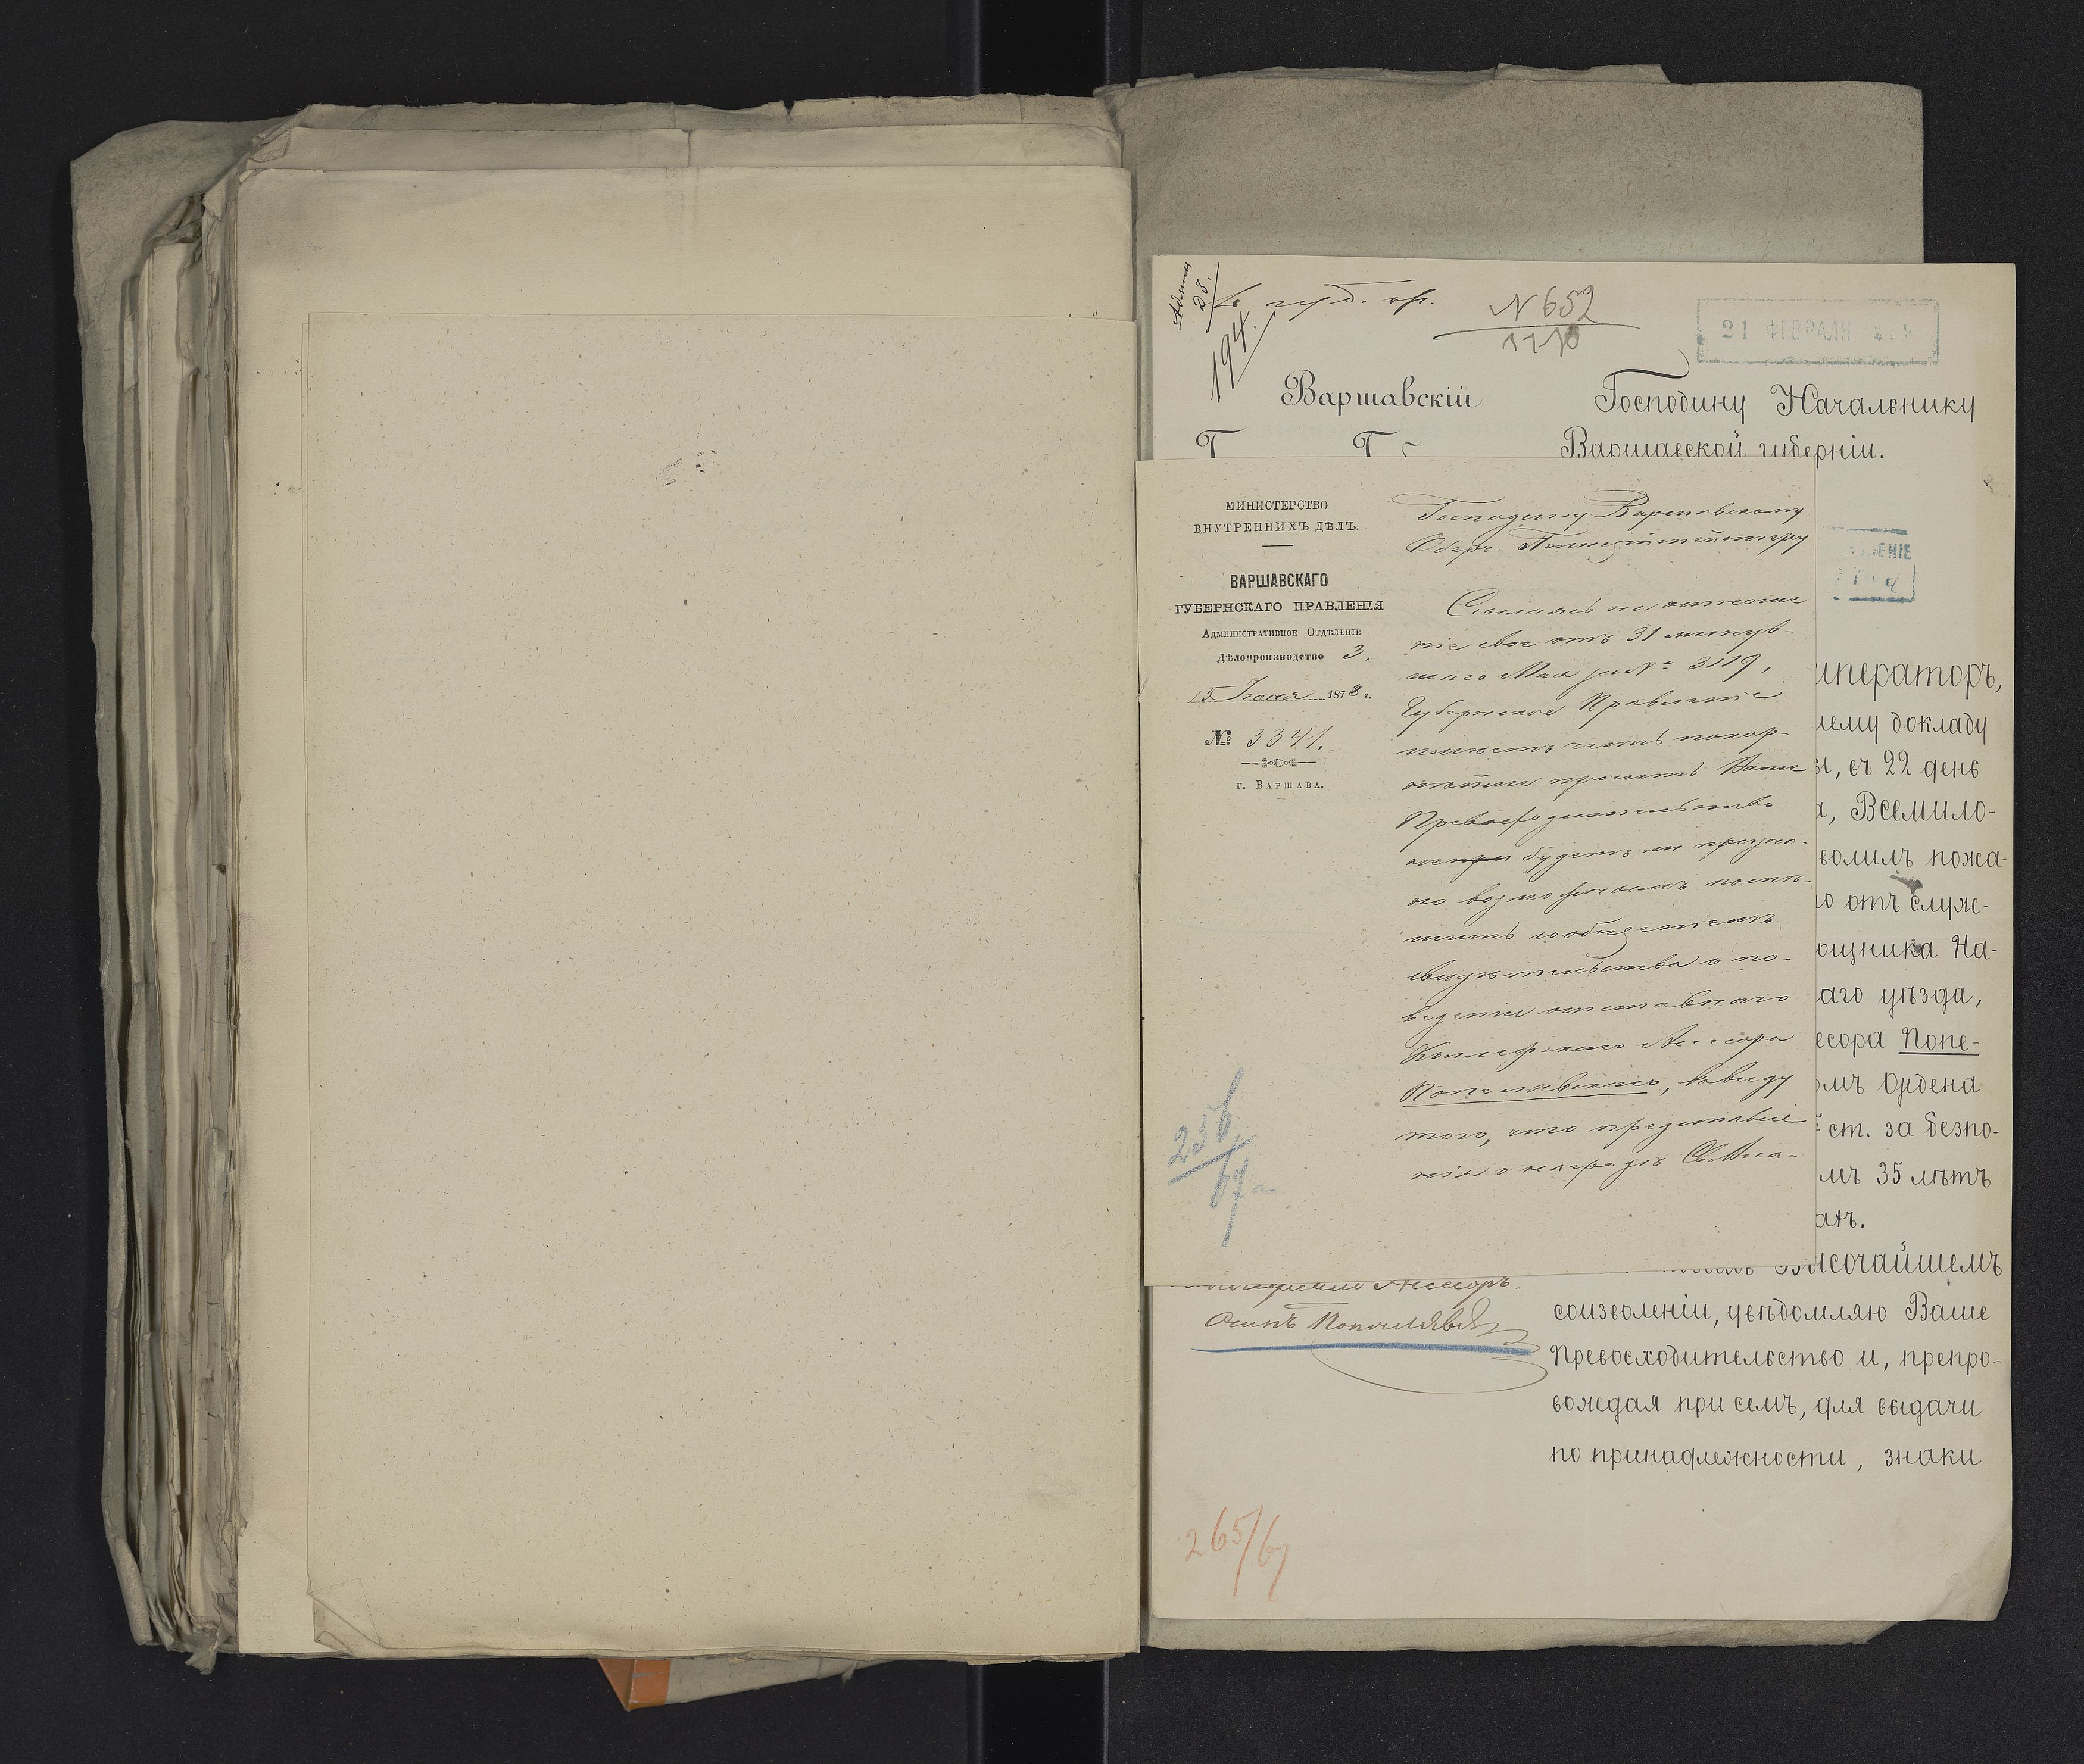 194.
N 652
21 ФЕВРАЛЯ
Варшавскій
Господину Начальнику
Варшавской губерніи.
МИНИСТЕРСТВО
ВНУТРЕННИХЪ ДѢЛЪ.
ВАРШАВСКАГО
ГУБЕРНСКАГО ПРАВЛЕНІЯ
Административное Отдѣленіе
Дѣлопроизводство 3.
15 Іюня 1878 г.
№ 3341.
г. Варшава.
Господину Варшавскому
Оберъ-Полиціймейстеру
Ссылаясь на отноше
ніе свое отъ 31 минув-
шаго Мая за № 3119,
Губернское Правленіе
имѣетъ честь покор-
нѣйше просить Ваше
Превосходительство
не будетъ ли призна-
но возможнымъ поспѣ-
шить сообщеніемъ
свидѣтельства о по-
веденіи отставнаго
Коллежскаго Ассесора
Попелявскаго, ввиду
того, что представле
нія о наградѣ Св. Анна-
256/67
леніе
ператоръ,
ему докладу
ы, въ 22 день
а, Всемило-
волилъ пожа-
о отъ служ-
ощника На-
аго уѣзда,
есора Попе-
омъ Ордена
ст. за безпо-
мъ 35 лѣтъ
ахъ.
Высочайшемъ
соизволеніи, увѣдомляю Ваше
Превосходительство и, препро-
вождая при семъ, для выдачи
по принадлежности, знаки
Ассесоръ.
Осипъ Попелявск
265/67